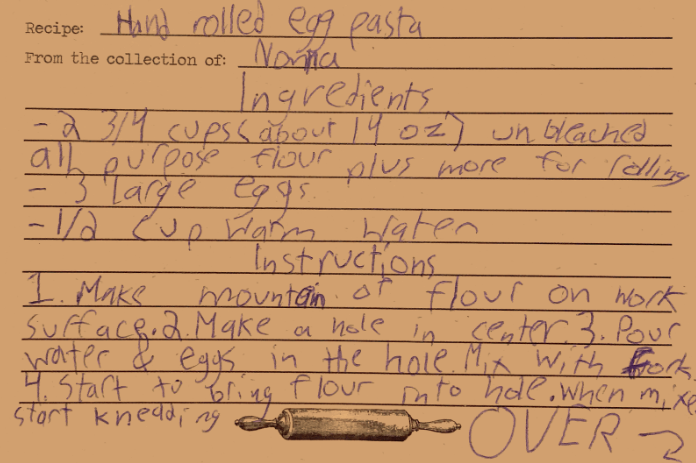 Recipe: Hand rolled egg pasta
From the collection of: Nonna
Ingredients
- 2 3/4 cups (about 14 oz) unbleached
all purpose flour plus more for rolling
- 3 large eggs.
- 1/2 cup warm water
Instructions
1. Make mountain of flour on work
surface. 2. Make a hole in center. 3. Pour
water & eggs in the hole. Mix with fork.
4. Start to bring flour into hole. When mixed
start knedding
OVER